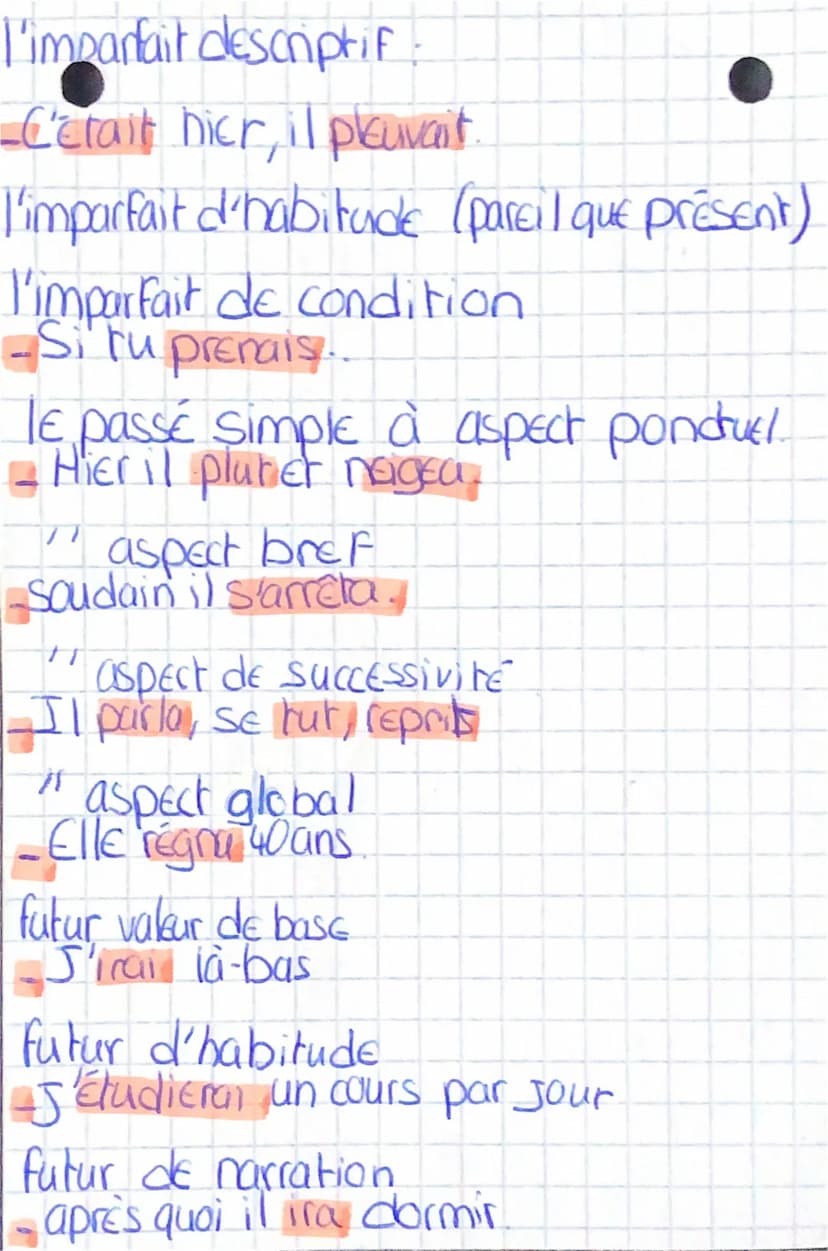 l'imparfait descriptif :
-C'était hier, il pleuvait.
l'imparfait d'habitude (pareil que présent)
l'imparfait de condition
-Si tu prenais..
le passé simple à aspect ponctuel.
- Hier il plut et neigea.
" aspect bref
-soudain il s'arrêta.
" aspect de successivité
-Il parla, se tut, reprit
" aspect global
-Elle régna 40ans.
futur valeur de base
-J'irai là-bas
futur d'habitude
-J'étudierai un cours par jour
futur de narration
- après quoi il ira dormir.